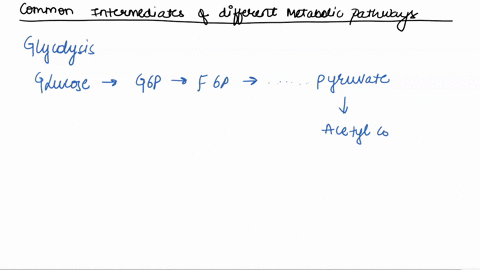 Common Intermediates of different Metabolic pathways
Glycolysis
Glucose → G6P → F6P → ...... pyruvate
↓
Acetyl co